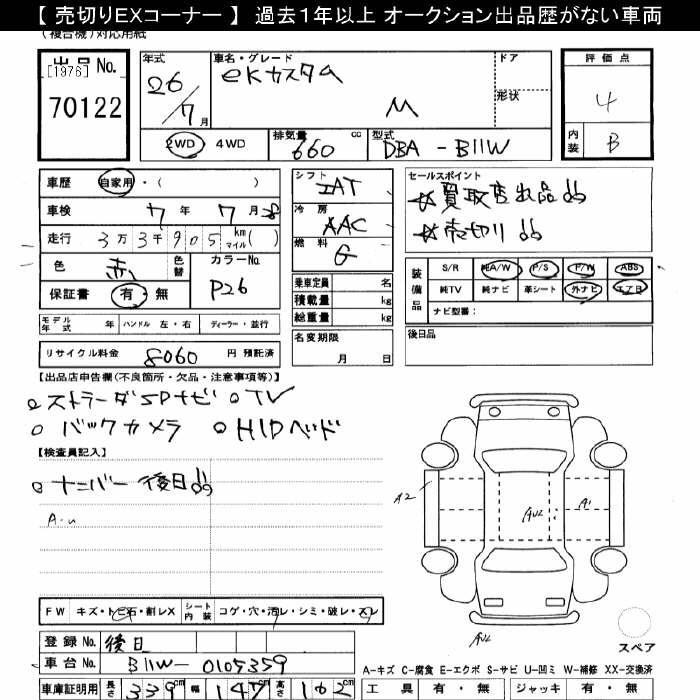 【 売切りEXコーナー 】 過去１年以上 オークション出品歴がない車両
(複合機)対応用紙
出品No.
[1976]
70122
年式
26/7月
車名・グレード
eKカスタム
M
ドア
形状
2WD 4WD
排気量
660 cc
型式
DBA - B11W
評価点
4
内装
B
車歴 自家用・( )
車検 7年 7月
走行 3万3千905 km マイル( )
色 赤 色替
カラーNo.
P26
保証書 有・無
シフト
IAT
冷房
AAC
燃料
G
乗車定員 名
積載量 kg
総重量 kg
名変期限
月 日
セールスポイント
☆買取店出品!!
☆売切り!!
装備品
S/R 純A/W P/S P/W ABS
純TV 純ナビ 革シート 外ナビ エアB
ナビ型番：
後日品
モデル年式 年 ハンドル 左・右 ディーラー・並行
リサイクル料金 8060 円 預託済
【出品店申告欄(不良箇所・欠品・注意事項等)】
○ストラーダSDナビ ○TV
○バックカメラ ○HIDヘッド
【検査員記入】
○ナンバー後日!!
A・U
A2
AU2
A1
AU2
スペア
FW キズ・トビ石・割レX
シート内装 コゲ・穴・汚レ・シミ・破レ・スレ
登録No. 後日
車台No. B11W-0105359
車庫証明用 長さ 339cm 幅 147cm 高さ 162cm
A-キズ C-腐食 E-エクボ S-サビ U-凹ミ W-補修 XX-交換済
工具 有・無 ジャッキ 有・無